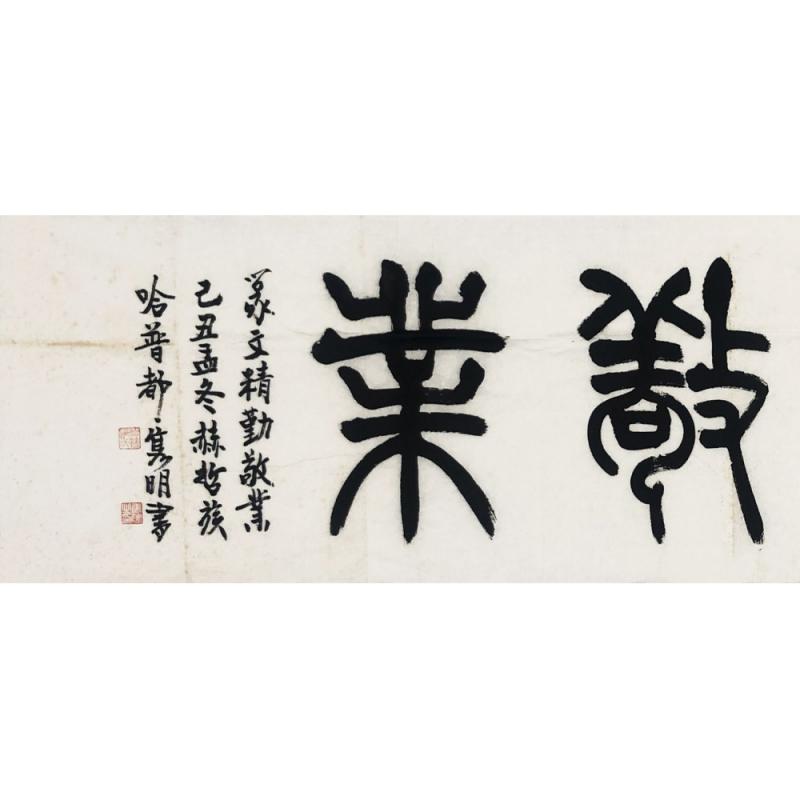 敬業
篆文精勤敬業
己丑孟冬赫哲族
哈普都·隽明書